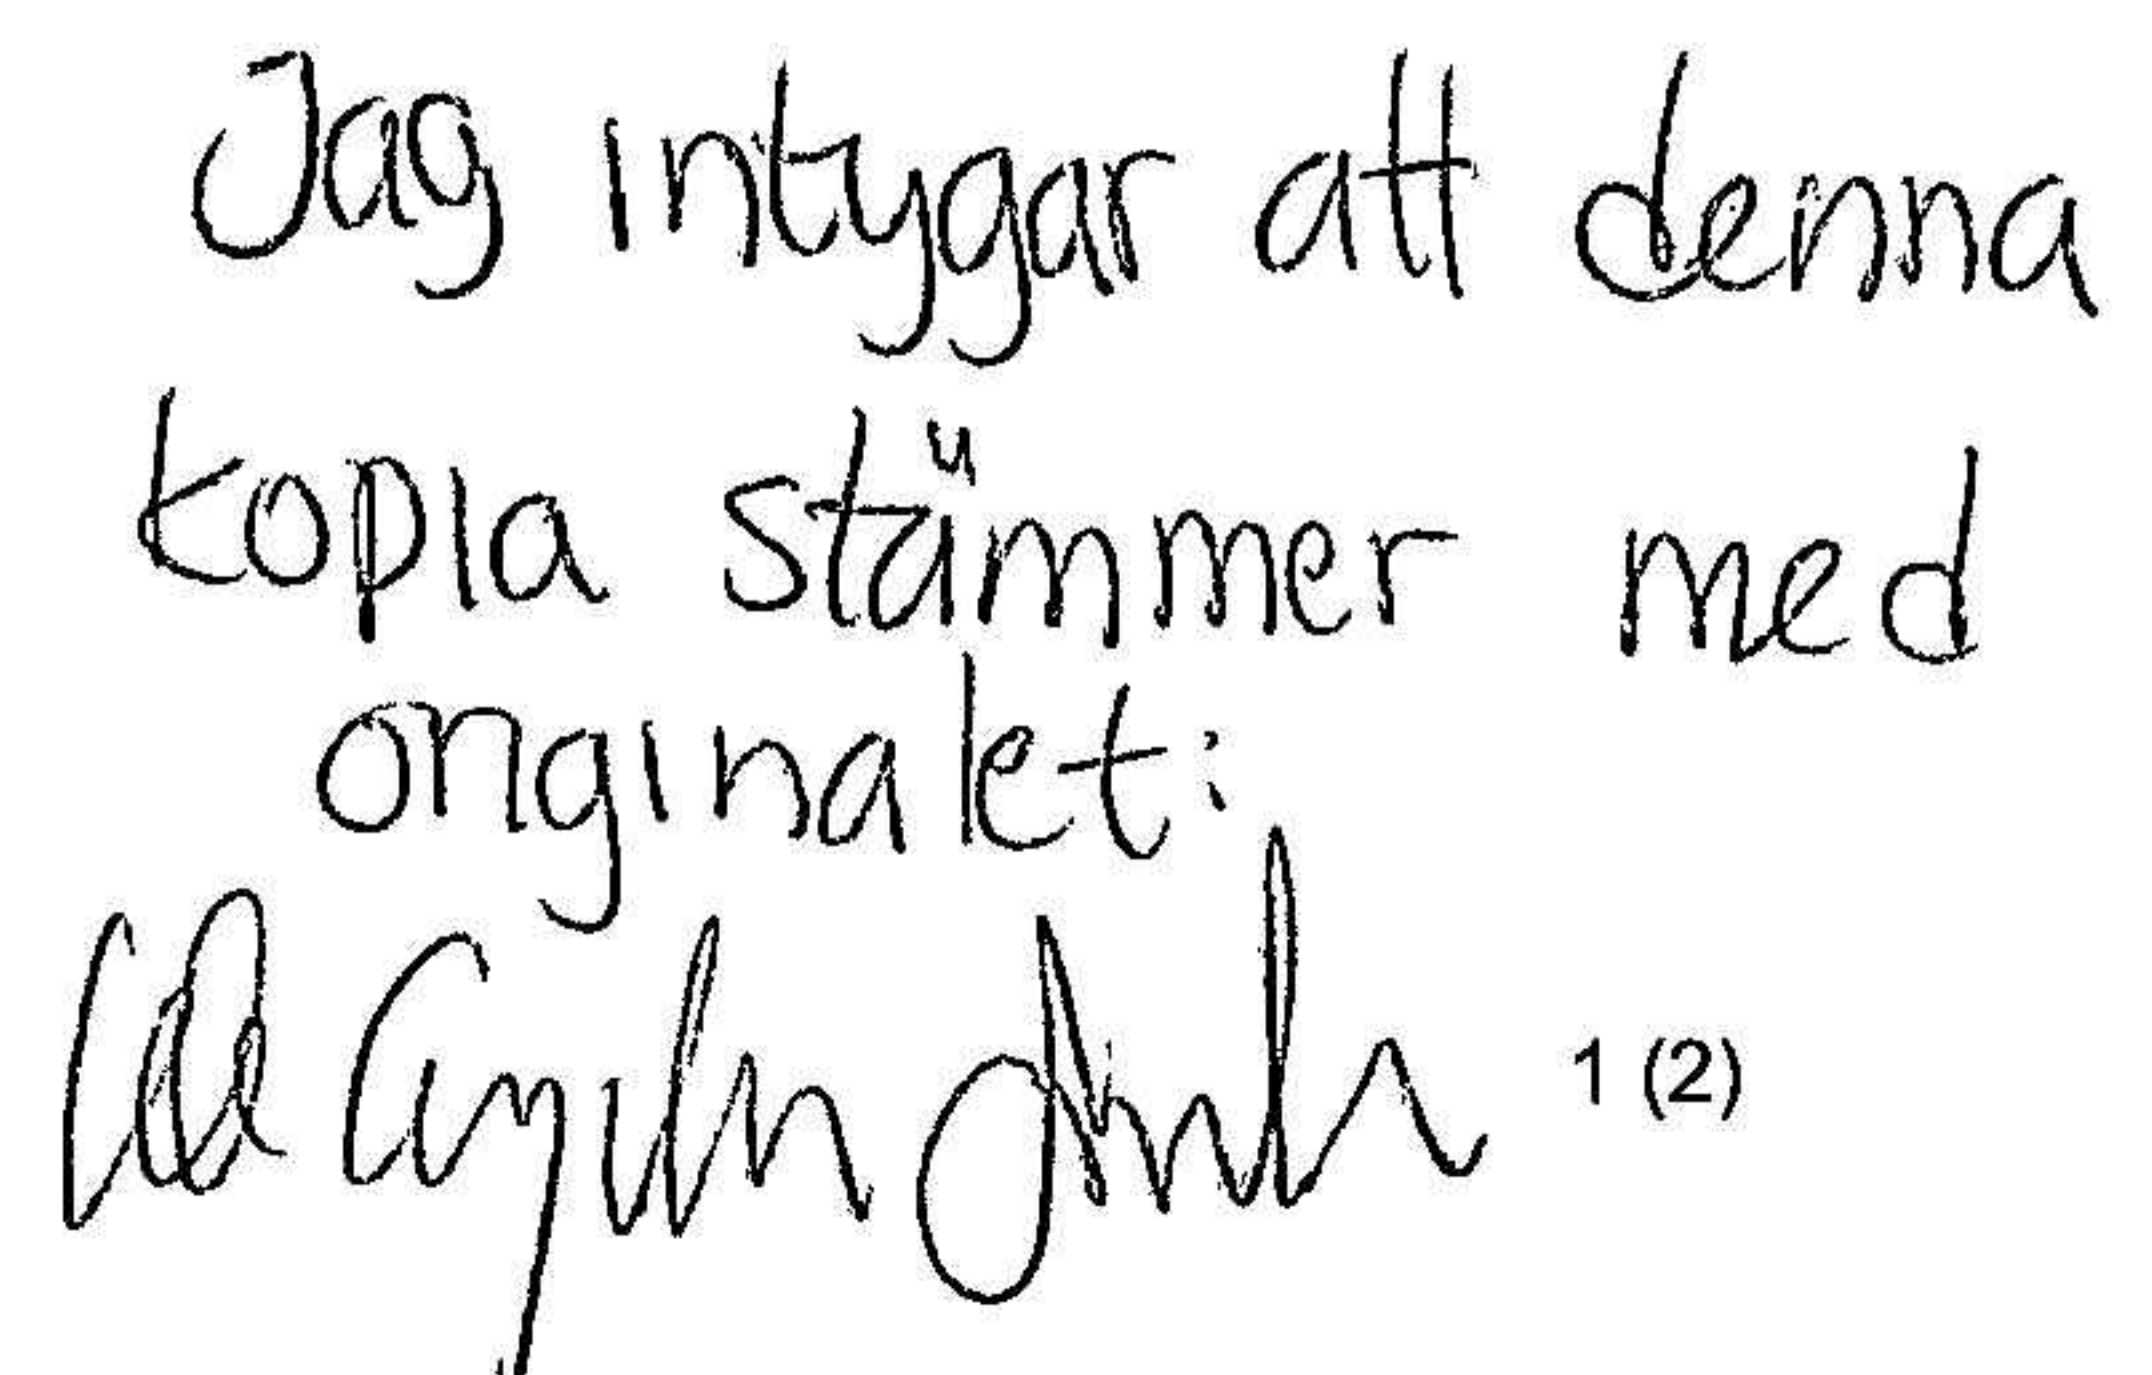 Jag intygar att denna
kopia stämmer med
originalet:
1 (2)